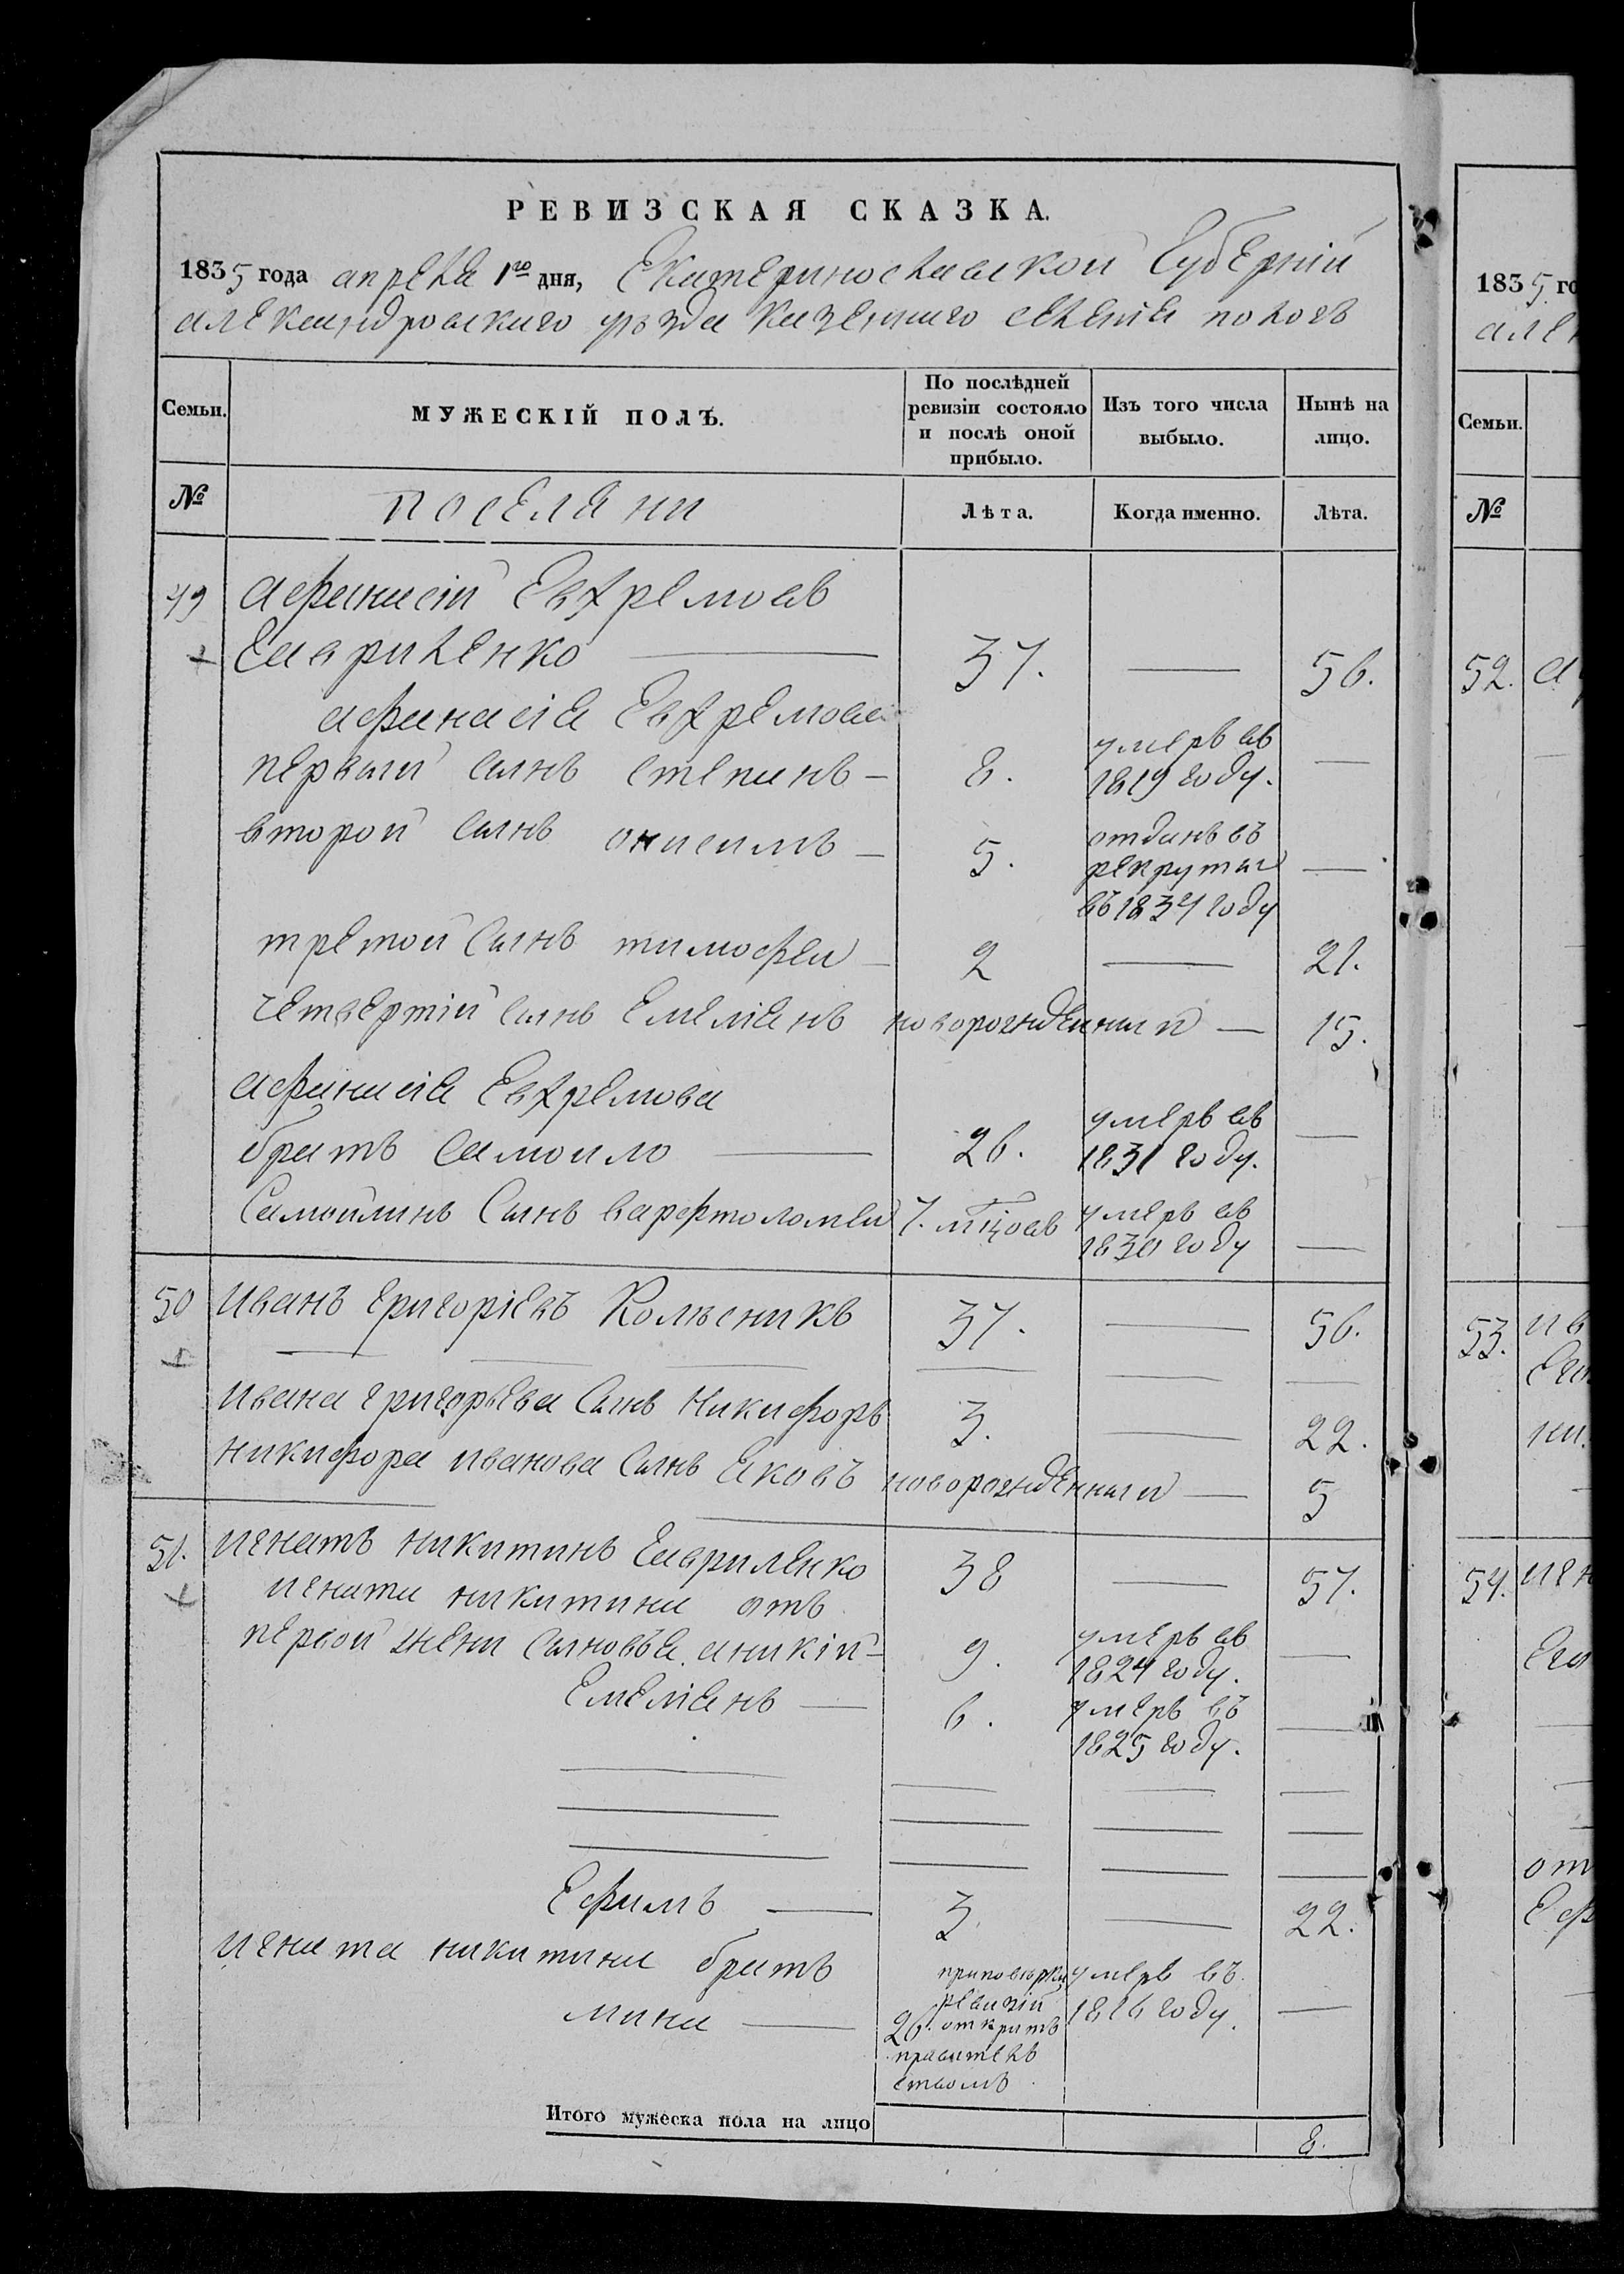 РЕВИЗСКАЯ СКАЗКА.
1835 года апреля 1го дня, Екатеринославской Губерніи
александровскаго уѣзда казеннаго селенія пологъ
Семьи. МУЖЕСКІЙ ПОЛЪ. По послѣдней ревизіи состояло и послѣ оной прибыло. Изъ того числа выбыло. Нынѣ на лицо.
№ поселяни Лѣта. Когда именно. Лѣта.
49 афанасій Евхремовъ
Гавриленко 37. — 56.
афанасія Евхремова
первый сынъ степанъ — 8. умеръ въ 1819 году. —
второй сынъ онисимъ — 5. отданъ въ рекруты въ 1834 году —
третой сынъ тимофей — 2 — 21.
четвертій сынъ Емеліянъ новорожденный — 15.
афанасія Евхремова
братъ самойло — 26. умеръ въ 1831 году. —
Самойлинъ Сынъ варфтоломей 7. мцовъ умеръ въ 1830 году —
50 Иванъ григоріевъ Колѣсникъ 37. — 56.
Ивана григорьева Сынъ Никифоръ 3. — 22.
никифора иванова Сынъ Яковъ новорожденный — 5
51. игнатъ никитинъ Гавриленко 38 — 57.
игната никитина отъ
первой жены Сыновья аникій — 9. умеръ въ 1824 году. —
Емеліянъ — 6. умеръ въ 1825 году. —
Ефимъ — 3. — 22.
игната никитина братъ
мина — 26. приповѣрки ревизіи открытъ правительствомъ умеръ въ 1816 году. —
Итого мужеска пола на лицо 8.
1835. го
алек
Семьи.
№
52.
53. ив
54. игн
Еф